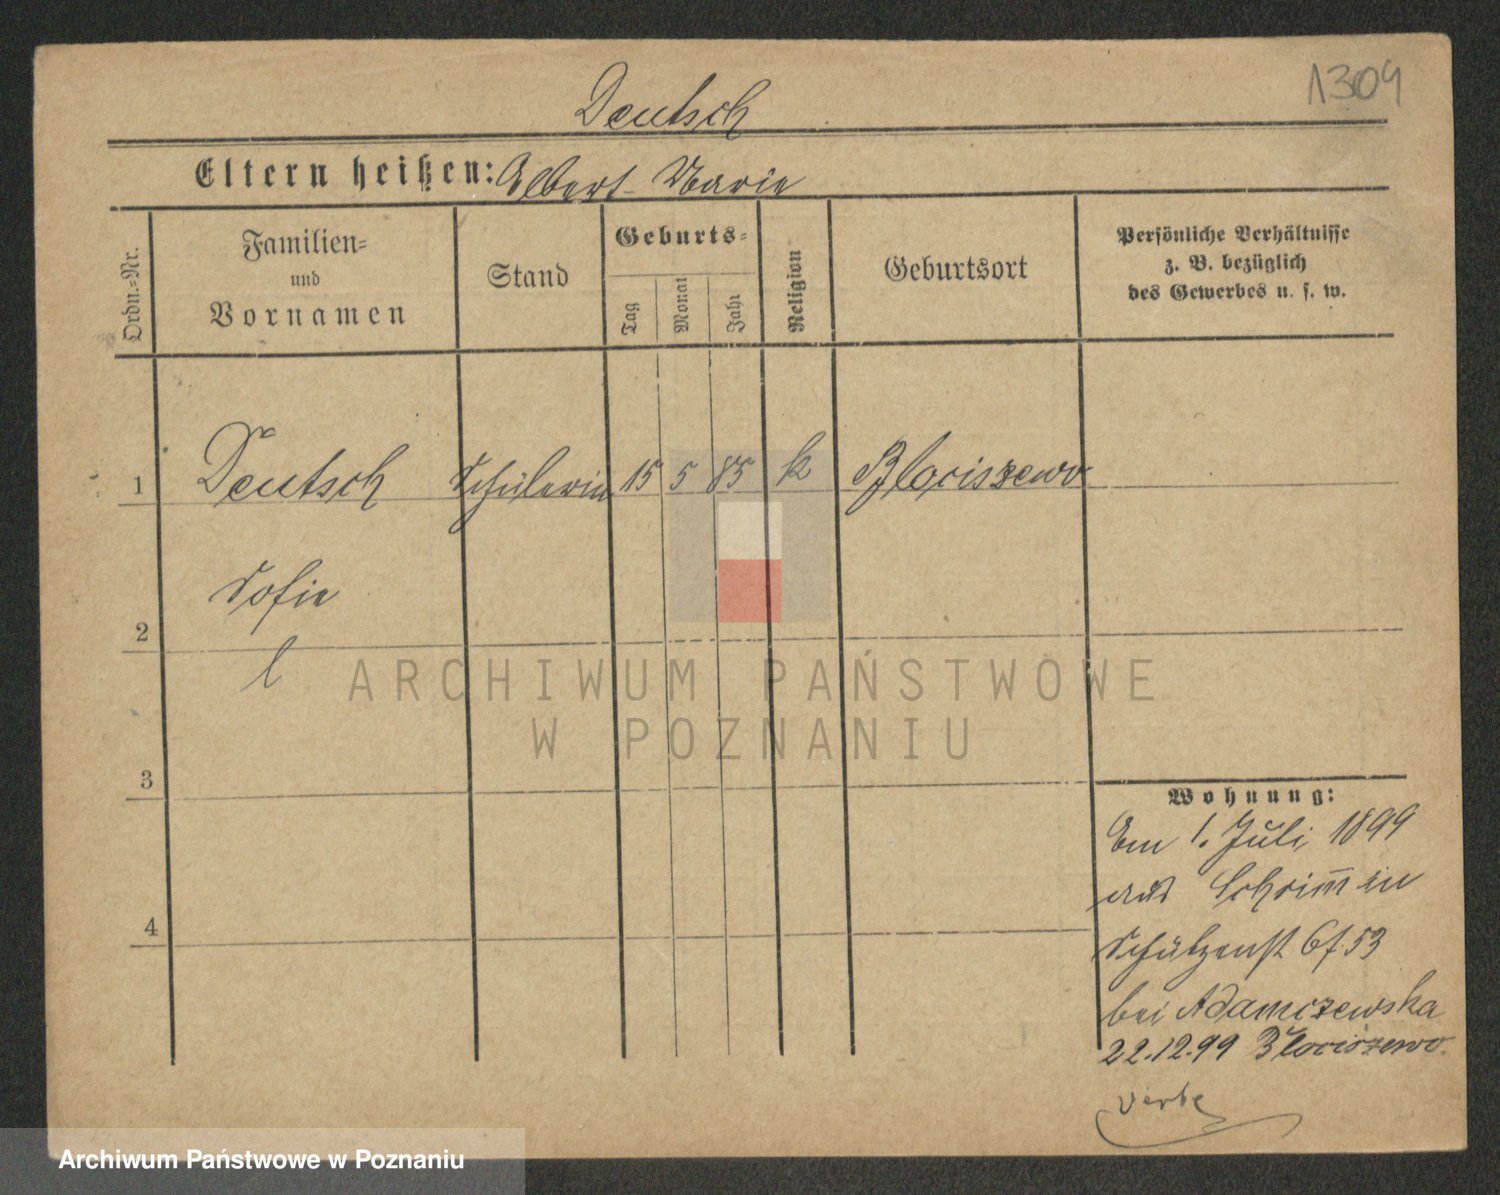 1309
Deutsch
Eltern heißen: Albert Marie
Ordn.-Nr.
Familien- und Vornamen
Stand
Geburts-
Tag
Monat
Jahr
Religion
Geburtsort
Persönliche Verhältnisse
z. B. bezüglich
des Gewerbes u. s. w.
1 Deutsch Schülerin 15 5 85 k Wloriszewo
Sofie
2
l
3
4
Wohnung:
Am 1. Juli 1899
aus Schrimm in
Schützenst 6 f. 53
bei Adamczewska
22.12.99 Wlociszewo
ARCHIWUM PAŃSTWOWE
W POZNANIU
Archiwum Państwowe w Poznaniu